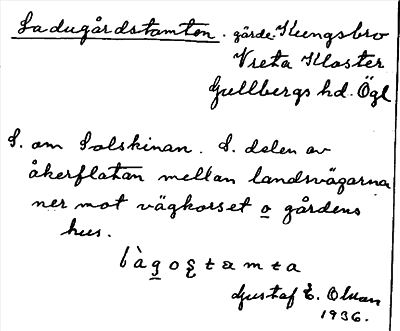 Ladugårdstomten. gärde. Kungsbro
Vreta Kloster
Gullbergs hd. Ögl
S. om Solskinan. S. delen av
åkerflatan mellan landsvägarna
ner mot vägkorset o gårdens
hus.
Gustaf E. Olsson
1936.